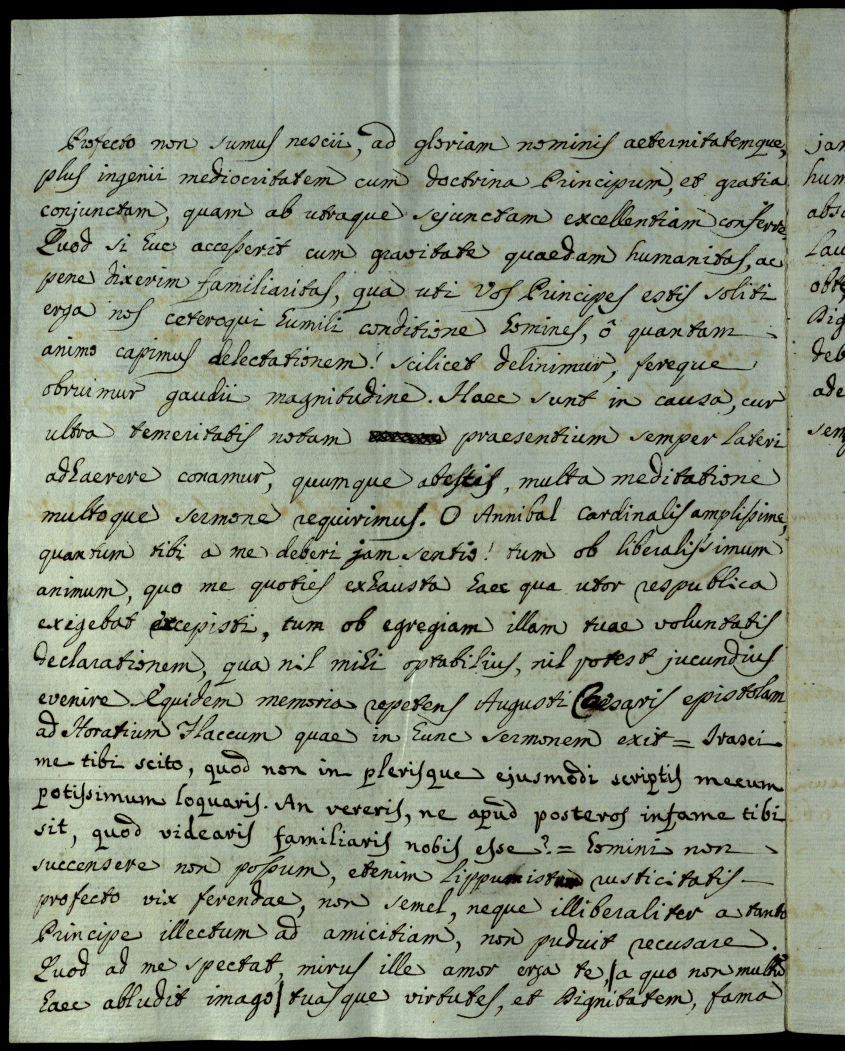 Profecto non sumus nescii, ad gloriam nominis aeternitatemque,
plus ingenii mediocritatem cum doctrina Principum, et gratia
conjunctam, quam ab utraque sejunctam excellentiam conferre
Quod si huc accesserit cum gravitate quaedam humanitas, ac
pene dixerim familiaritas, qua uti Vos Principes estis soliti
erga nos ceteroqui humili conditione homines, ô quantam
animo capimus delectationem! scilicet delinimur, fereque
obruimur gaudii magnitudine. Haec sunt in causa, cur
ultra temeritatis notam praesentium semper lateri
adhaerere conamur, quumque abestis, multa meditatione
multoque sermone requirimus. O Annibal Cardinalis amplissime,
quantum tibi a me deberi jam sentio! tum ob liberalissimum
animum, quo me quoties exhausta haec qua utor respublica
exigebat excepisti, tum ob egregiam illam tuae voluntatis
declarationem, qua nil mihi optabilius, nil potest jucundius
evenire. Equidem memoria repetens Augusti Caesaris epistolam
ad Horatium Flaccum quae in hunc sermonem exit = Irasci
me tibi scito, quod non in plerisque ejusmodi scriptis mecum
potissimum loquaris. An vereris, ne apud posteros infame tibi
sit, quod videaris familiaris nobis esse? = homini non
succensere non possum, etenim rusticitatis
profecto vix ferendae, non semel, neque illiberaliter a tanto
Principe illectum ad amicitiam, non puduit recusare.
Quod ad me spectat, mirus ille amor erga te, /a quo non multum
haec abludit imago/ tuasque virtutes, et Dignitatem, fama